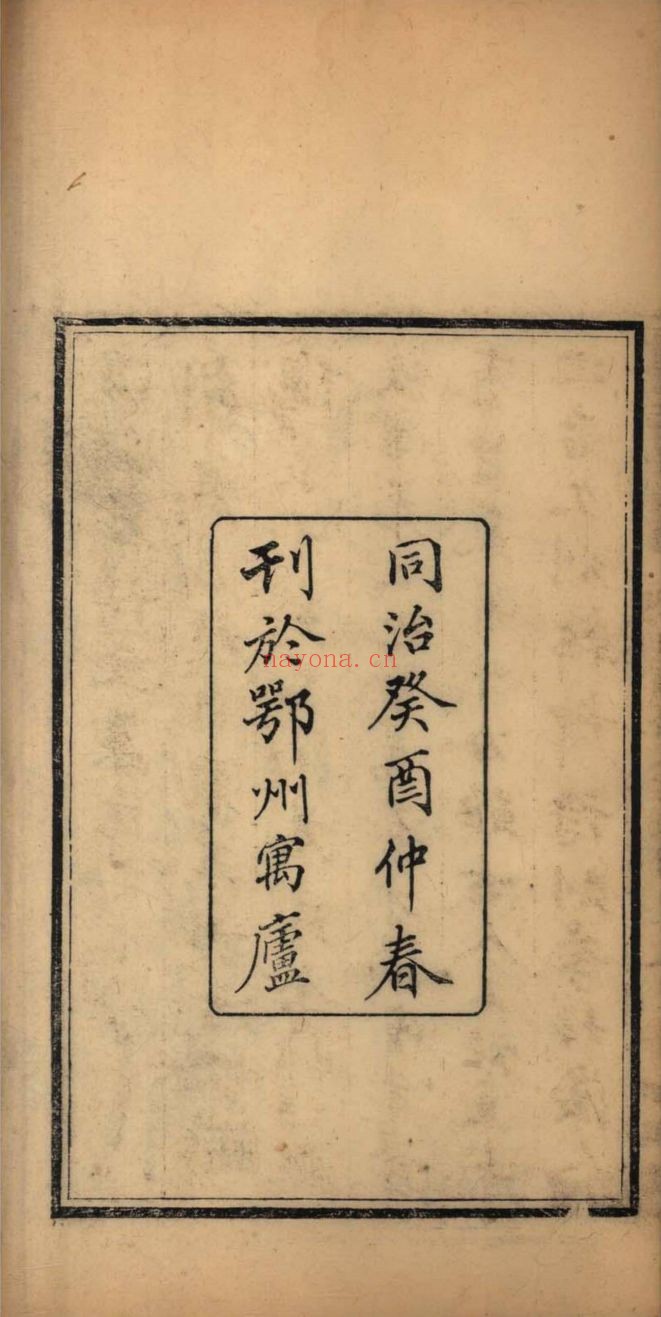 同治癸酉仲春
刊於鄂州寓廬
nayona.cn